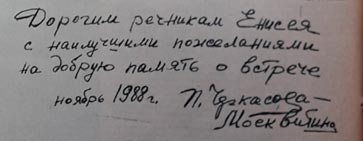 Дорогим речникам Енисея
с наилучшими пожеланиями
на добрую память о встрече
ноябрь 1988г. П. Черкасова-
Москвитина